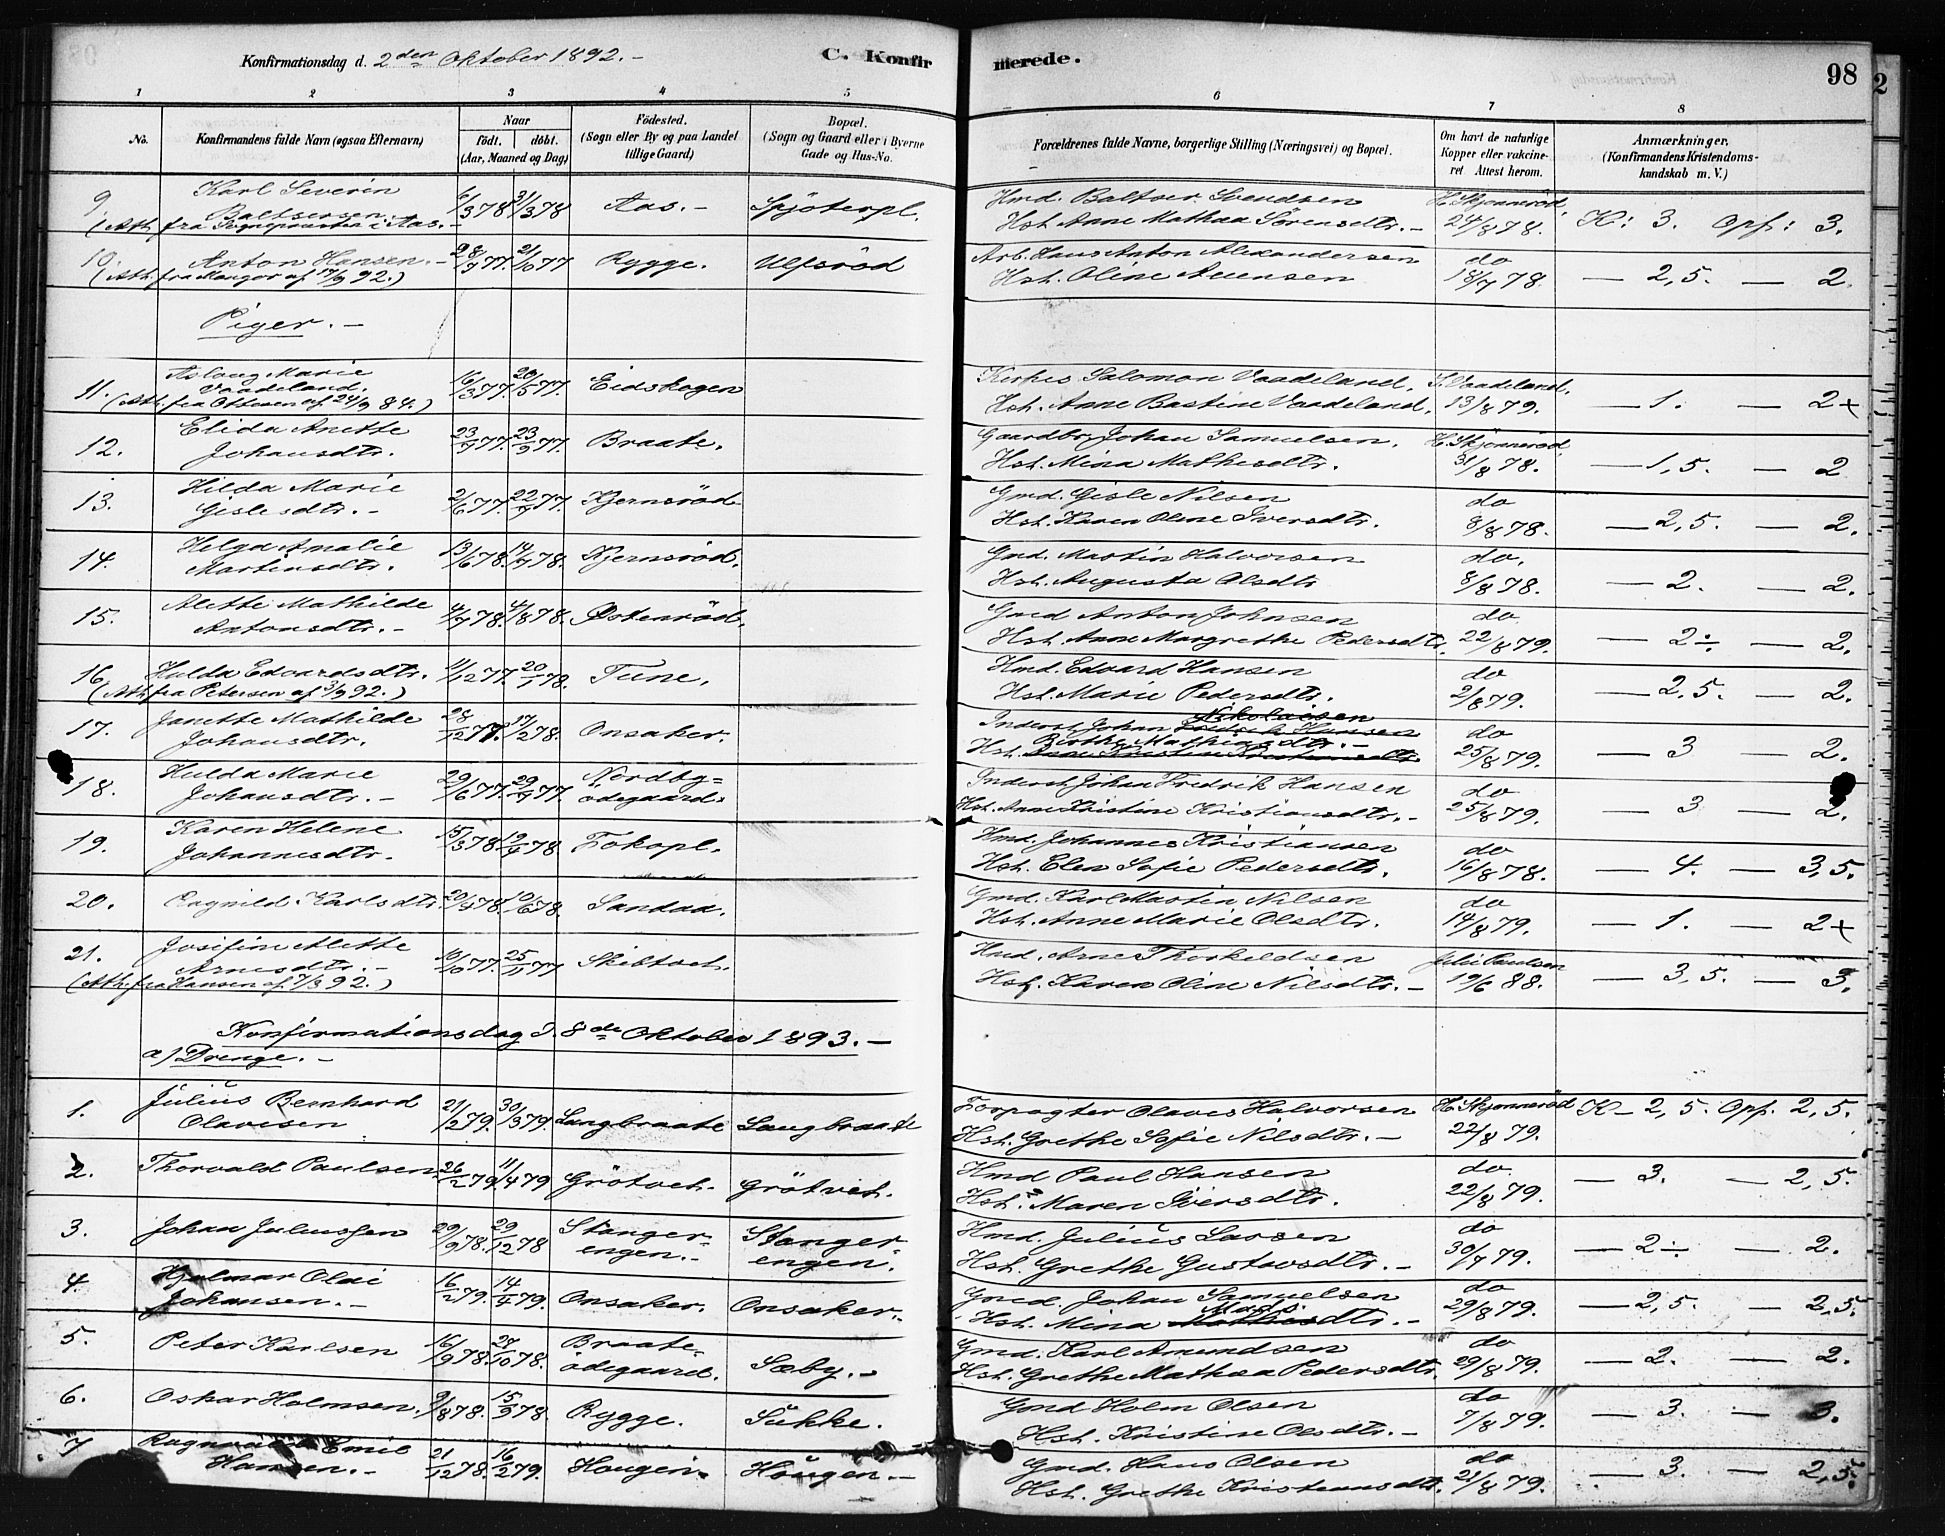 Konfirmationsdag d. 2den Oktober 1892. –
C. Konfirmerede.
98
1 2 3 4 5 6 7 8
No. Konfirmandens fulde Navn (ogsaa Efternavn) Naar født. døbt. (Aar, Maaned og Dag) Fødested. (Sogn eller By og paa Landet tillige Gaard) Bopæl. (Sogn og Gaard eller i Byerne Gade og Hus-No. Forældrenes fulde Navne, borgerlige Stilling (Næringsvei) og Bopæl. Om havt de naturlige Kopper eller vakcineret. Attest herom. Anmærkninger. (Konfirmandens Kristendomskundskab m. V.)
9. Karl Severin 6/3 78 31/3 78 Aas. – Spjöterpl. Hmd. Baltser Svendsen H. Skjonneröd
Baltsersen. Hst. Anne Mathea Sörensdtr. – 24/8 78. K: 3. Opf: 3.
(Att. fra Sognepræsten i Aas. –
10. Anton Hansen. – 28/7 77 21/10 77 Rygge. Ulfsröd Arb. Hans Anton Alexandersen do
(Att. fra Mangor af 17/9 92.) Hst. Oline 18/7 78. — 2,5. — 2.
Piger. –
11. Aslaug Marie 16/3 77. 20/5 77. Eidskogen Salomon Vaadeland. S. Vaadeland.
Vaadeland. Hst. Anne Bastine Vaadeland. 13/8 79. — 1. — 2+
(Att. fra Ottesen af 24/9 84.)
12. Elida Anette 23/7 77. 23/9 77. Braate. Gaardbr. Johan Samuelsen. H. Skjönneröd
Johansdtr. Hst. Mina Mathisdtr. 31/8 78. — 1,5. — 2
13. Hilda Marie 2/6 77. 22/7 77. Kjernsröd Gmd. Gisle Nilsen do
Gislesdtr. – Hst. Karen Oline Iversdtr. 8/8 78. — 2,5. — 2.
14. Helga Amalie 13/6 78. 14/7 78. Kjernsröd. Gmd. Martin Halvorsen do.
Martinsdtr. Hst. Augusta Olsdtr 8/8 78. — 2. — 2.
15. Alette Mathilde 4/7 78. 4/8 78. Östenröd. Gmd Anton Johnsen do
Antonsdtr. – Hst. Anne Margrethe Pedersdtr. 22/8 79. — 2÷ — 2.
16. Hulda Edvardsdtr. 11/12 77. 20/1 78. Tune. Hmd. Edvard Hansen do
(Att. fra Petersen af 3/9 92.) Hst. Marie Pedersdtr. 2/8 79. — 2,5. — 2.
17. Janette Mathilde 28/12 77. 17/2 78. Onsaker. Inderst Johan Fredrik Hansen Nikolaisen do
Johansdtr. Hst. Anne Kristine Kristiansdtr. Birthe Mathiasdtr. – 25/8 79. — 3 — 2.
18. Hulda Marie 29/6 77. 29/7 77. Nordby= Inderst Johan Fredrik Hansen do
Johansdtr. – ödegaard. Hst. Anne Kristine Kristiansdtr. – 25/8 79. — 3 — 2.
19. Karen Helene 15/3 78. 19/4 78. Fokopl. Hmd. Johannes Kristiansen do
Johannesdtr. Hst. Elen Sofie Pedersdtr. 16/8 78. — 4. — 3,5.
20. Ragnild Karlsdtr. 20/4 78. 10/6 78. Sandaa. Gmd. Karl Martin Nilsen do
Hst. Anne Marie Olsdtr. 14/8 79. — 1. — 2+
21. Josefine Alette 16/10 77. 25/11 77 Skibtvet. Hmd. Arne Thorkildsen Julie Paulsen
Arnesdtr. – Hst. Karen Oline Nilsdtr. – 19/6 88. — 3,5. — 3.
(Att. fra Hansen af 7/3 92.)
Konfirmationsdag d. 8de Oktober 1893. –
a) Drenge. –
1. Julius Bernhard 21/2 79. 30/3 79. Langbraate Langbraate Forpagter Olaves Halvorsen H. Skjonneröd K – 2,5. Opf. 2,5.
Olavesen Hst. Grethe Sofie Nilsdtr. – 22/8 79.
2. Thorvald Paulsen 26/2 79. 11/4 79 Grötvet. Grötvet. Hmd Paul Hansen do
Hst. Maren Iversdtr. 22/8 79. — 3. — 2,5.
3. Johan Juliussen 29/9 78. 29/12 78 Stanger= Stanger= Hmd. Julius Larsen do
engen. – engen. Hst. Grethe Gustavsdtr. – 30/7 79. — 2÷ — 2.
4. Hjalmar Olai 16/2 79. 14/4 79. Onsaker. Onsaker. Gmd. Johan Samuelsen do
Johansen. – Hst. Mina Mathisdtr. Mads – 29/8 79. — 2,5. — 2,5.
5. Peter Karlsen 16/9 78. 27/10 78. Braate= Gmd. Karl Amundsen do
ödegaard. Sæby. – Hst. Grethe Mathea Pedersdtr. 29/8 79. — 2. — 2.
6. Oskar Holmsen. 9/8 78. 15/9 78. Rygge. Sukke. Gmd Holm Olsen do
Hst. Kristine Olsdtr. – 7/8 79. — 3. — 3.
7 Ragnvald Emil 21/12 78. 16/2 79. Haugen. Haugen. – Gmd. Hans Olsen do
Hansen. – Hst. Grethe Kristiansdtr. 21/8 79. — 3. — 2,5.